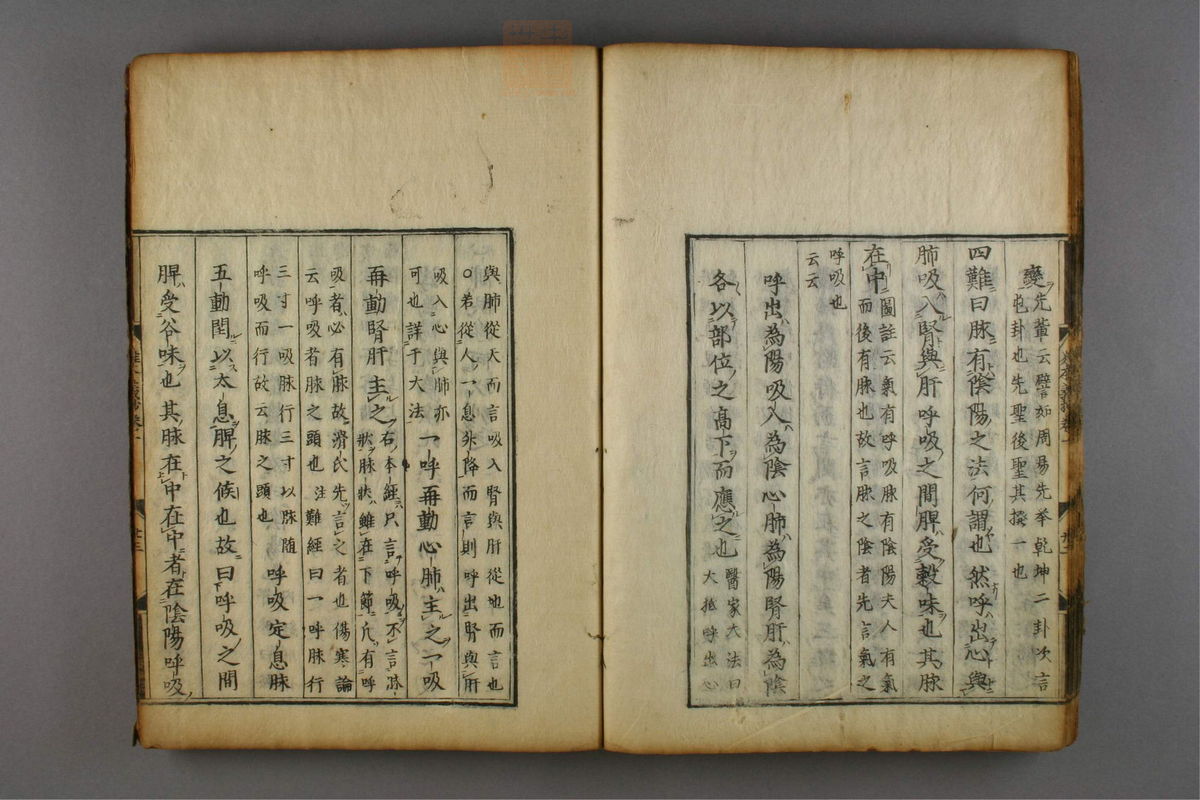 變先輩云譬如周昜先举乾坤二卦次言
屯卦也先聖後聖其揆一也
四難曰脉有陰陽之法何謂也然呼出心與
肺吸入腎與肝呼吸之間脾受穀味也其脉
在中圖註云氣有呼吸脉有陰陽夫人有氣
而後有脉也故言脉之陰者先言氣之
呼吸也
云云
呼出為陽吸入為陰心肺為陽腎肝為陰
各以部位之高下而應之也醫家大法曰
大抵呼出心
與肺從天而言吸入腎與肝從地而言也
○若從人一息升降而言則呼出腎與肝
吸入心與肺亦
可也詳于大法
一呼再動心肺主之一吸
再動腎肝主之右本經只言呼吸不言脉
状脉状雖在下節凢有呼
吸者必有脉故濟氏先言之者也傷寒論
云呼吸者脉之頭也注難經曰一呼脉行
三寸一吸脉行三寸以脉随
呼吸而行故云脉之頭也
呼吸定息脉
五動閏以太息脾之候也故曰呼吸之間
脾受谷味也其脉在中在中者在陰陽呼吸
廿三